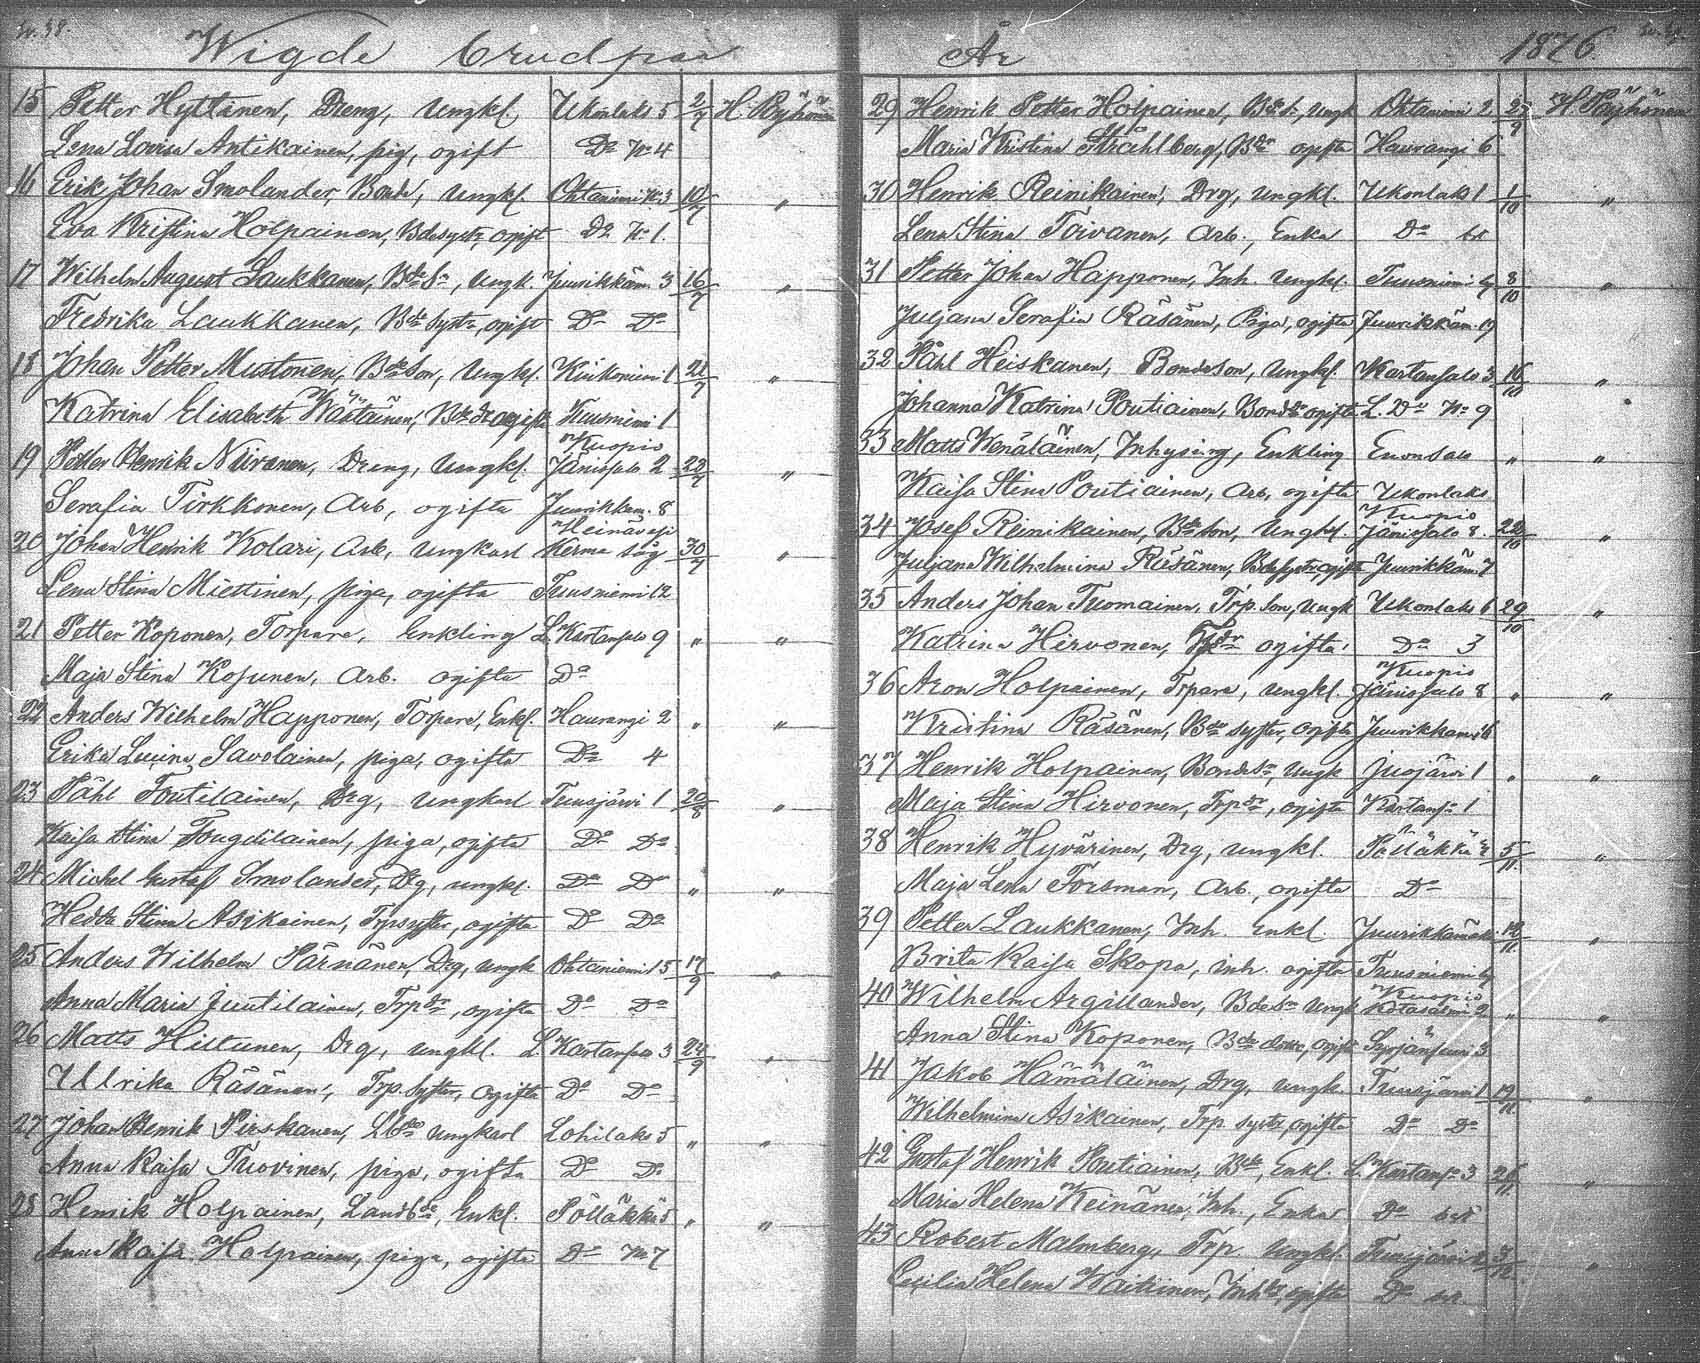 Wigde Brudpar
15 Petter Hyttinen, Dreng, Ungkl. Ukonlaks 5 2/7 H. Päyhönen
Lena Lovisa Antikainen, pig, ogift Do No 4
16 Erik Johan Smolander, Bonde, Ungkl. Ohtaniemi No 3 10/7 "
Eva Kristina Holpainen, Bdesystr, ogift Do No 1.
17 Wilhelm August Laukkanen, Bde Sn, Ungk. Juurikkäm. 3 16/7 "
Fredrika Laukkanen, Bde Systr, ogift Do Do
18 Johan Petter Mustonen, Bdeson, Ungkl. 1 21/7 "
Katrina Elisabeth ogifta Tuusniemi 1
19 Petter Henrik Niiranen, Dreng, Ungkl. Kuopio Jänissalo 2 22/7 "
Serafia Tirkkonen, Arb, ogifta Juurikkam. 8
20 Johan Henrik Kolari, Arb, Ungkarl Heinävesi Kerma såg 30/7 "
Lena Stina Miettinen, piga, ogifta Tuusniemi 12
21 Petter Koponen, Torpare, Enkling L. Kartansalo 9 " "
Maja Stina Kosunen, Arb. ogifta Do
22 Anders Wilhelm Happonen, Torpare, Enkl. Haurangi 2 " "
Erika Savolainen, piga, ogifta Do 4
23 Påhl Drg, Ungkarl Tuusjärvi 1 20/8 "
Kaisa Stina piga, ogifta Do Do
24 Michel Gustaf Smolander, Dg, ungkl. Do Do " "
Hedda Stina Asikainen, Trpsyster, ogifta Do Do
25 Anders Wilhelm Pärnänen, Drg, ungk Ohtaniemi 15 17/9 "
Anna Maria Juutilainen, Trpdr, ogifta Do Do
26 Matts Hiltunen, Drg, ungkl. L. Kartansalo 3 24/9 "
Ulrika Räsänen, Trp. Syster, ogifta Do Do
27 Johan Henrik Pirskanen, Ungkarl Lohilaks 5 " "
Anna Kaisa Tuovinen, piga, ogifta Do Do
28 Henrik Holpainen, Landbde, Enkl. Pölläkkä 5 " "
Anna Kaisa Holpainen, piga, ogifta Do No 7
År 1876.
29 Henrik Petter Holpainen, Bde S, Ungk Ohtaniemi 2 H. Päyhönen
Maria Kristina Stråhlberg, Bdr ogifta Haurangi 6
30 Henrik Reinikainen, Drg, Ungkl. Ukonlaks 1 1/10 "
Lena Stina Toivanen, Arb., Enka Do
31 Petter Johan Happonen, Inh. Ungkl. Tuusniemi 8/10 "
Juljana Serafia Räsänen, Piga, ogifta Juurikkäm. 19
32 Påhl Heiskanen, Bondeson, Ungkl. Kartansalo 3 16/10 "
Johanna Katrina Poutiainen, ogifta L. Do No 9
33 Matts Wenäläinen, Inhysing, Enkling Enonsalo " "
Kaisa Stina Poutiainen, Arb, ogifta Ukonlaks
34 Josef Reinikainen, Bde Son, Ungkl. Kuopio Jänissalo 8. 22/10 "
Juljana Wilhelmina Räsänen, Bdesystr, ogifta Juurikkäm. 7
35 Anders Johan Tuomainen, Trp. Son, Ungk Ukonlaks 6 29/10 "
Katrina Hirvonen, ogifta Do 3
36 Aron Holpainen, Trpare, Ungkl. Kuopio Jänissalo 8 " "
Kristina Räsänen, Bde syster, ogifta Juurikkam.
37 Henrik Holpainen, Bondesn, Ungk Juojärvi 1 " "
Maija Stina Hirvonen, Trpdr, ogifta Kartans. 1
38 Henrik Hyvärinen, Drg, Ungkl. Pölläkkä 5/11. "
Maja Lena Forsman, Arb., ogifta Do
39 Petter Laukkanen, Inh. Enkl. Juurikkamäki 12/11. "
Brita Kaisa Skopa, inh. ogifta Tuusniemi
40 Wilhelm Argillander, Bdesn Ungk Kuopio Kotasalmi 2 " "
Anna Stina Koponen, Bde ogift 3
41 Jakob Hämäläinen, Drg, Ungk. Tuusjärvi 1 19/11. "
Wilhelmina Asikainen, Trp. systr, ogifta Do Do
42 Gustaf Henrik Poutiainen, Bde, Enkl. L. Kartans. 3 26/11. "
Maria Helena Keinänen, Inh., Enka Do
43 Robert Malmberg, Trp. Ungkl. Tuusjärvi 3/12. "
Cecilia Helena ogifta Do